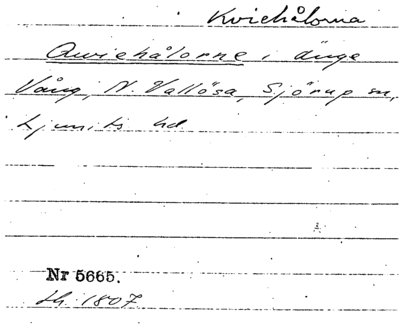 Kviehålorna
Qwiehålorne i änge
Vång, N. Vallösa, Sjörup sn,
Ljunits hd
Nr 5665.
Sh. 1807